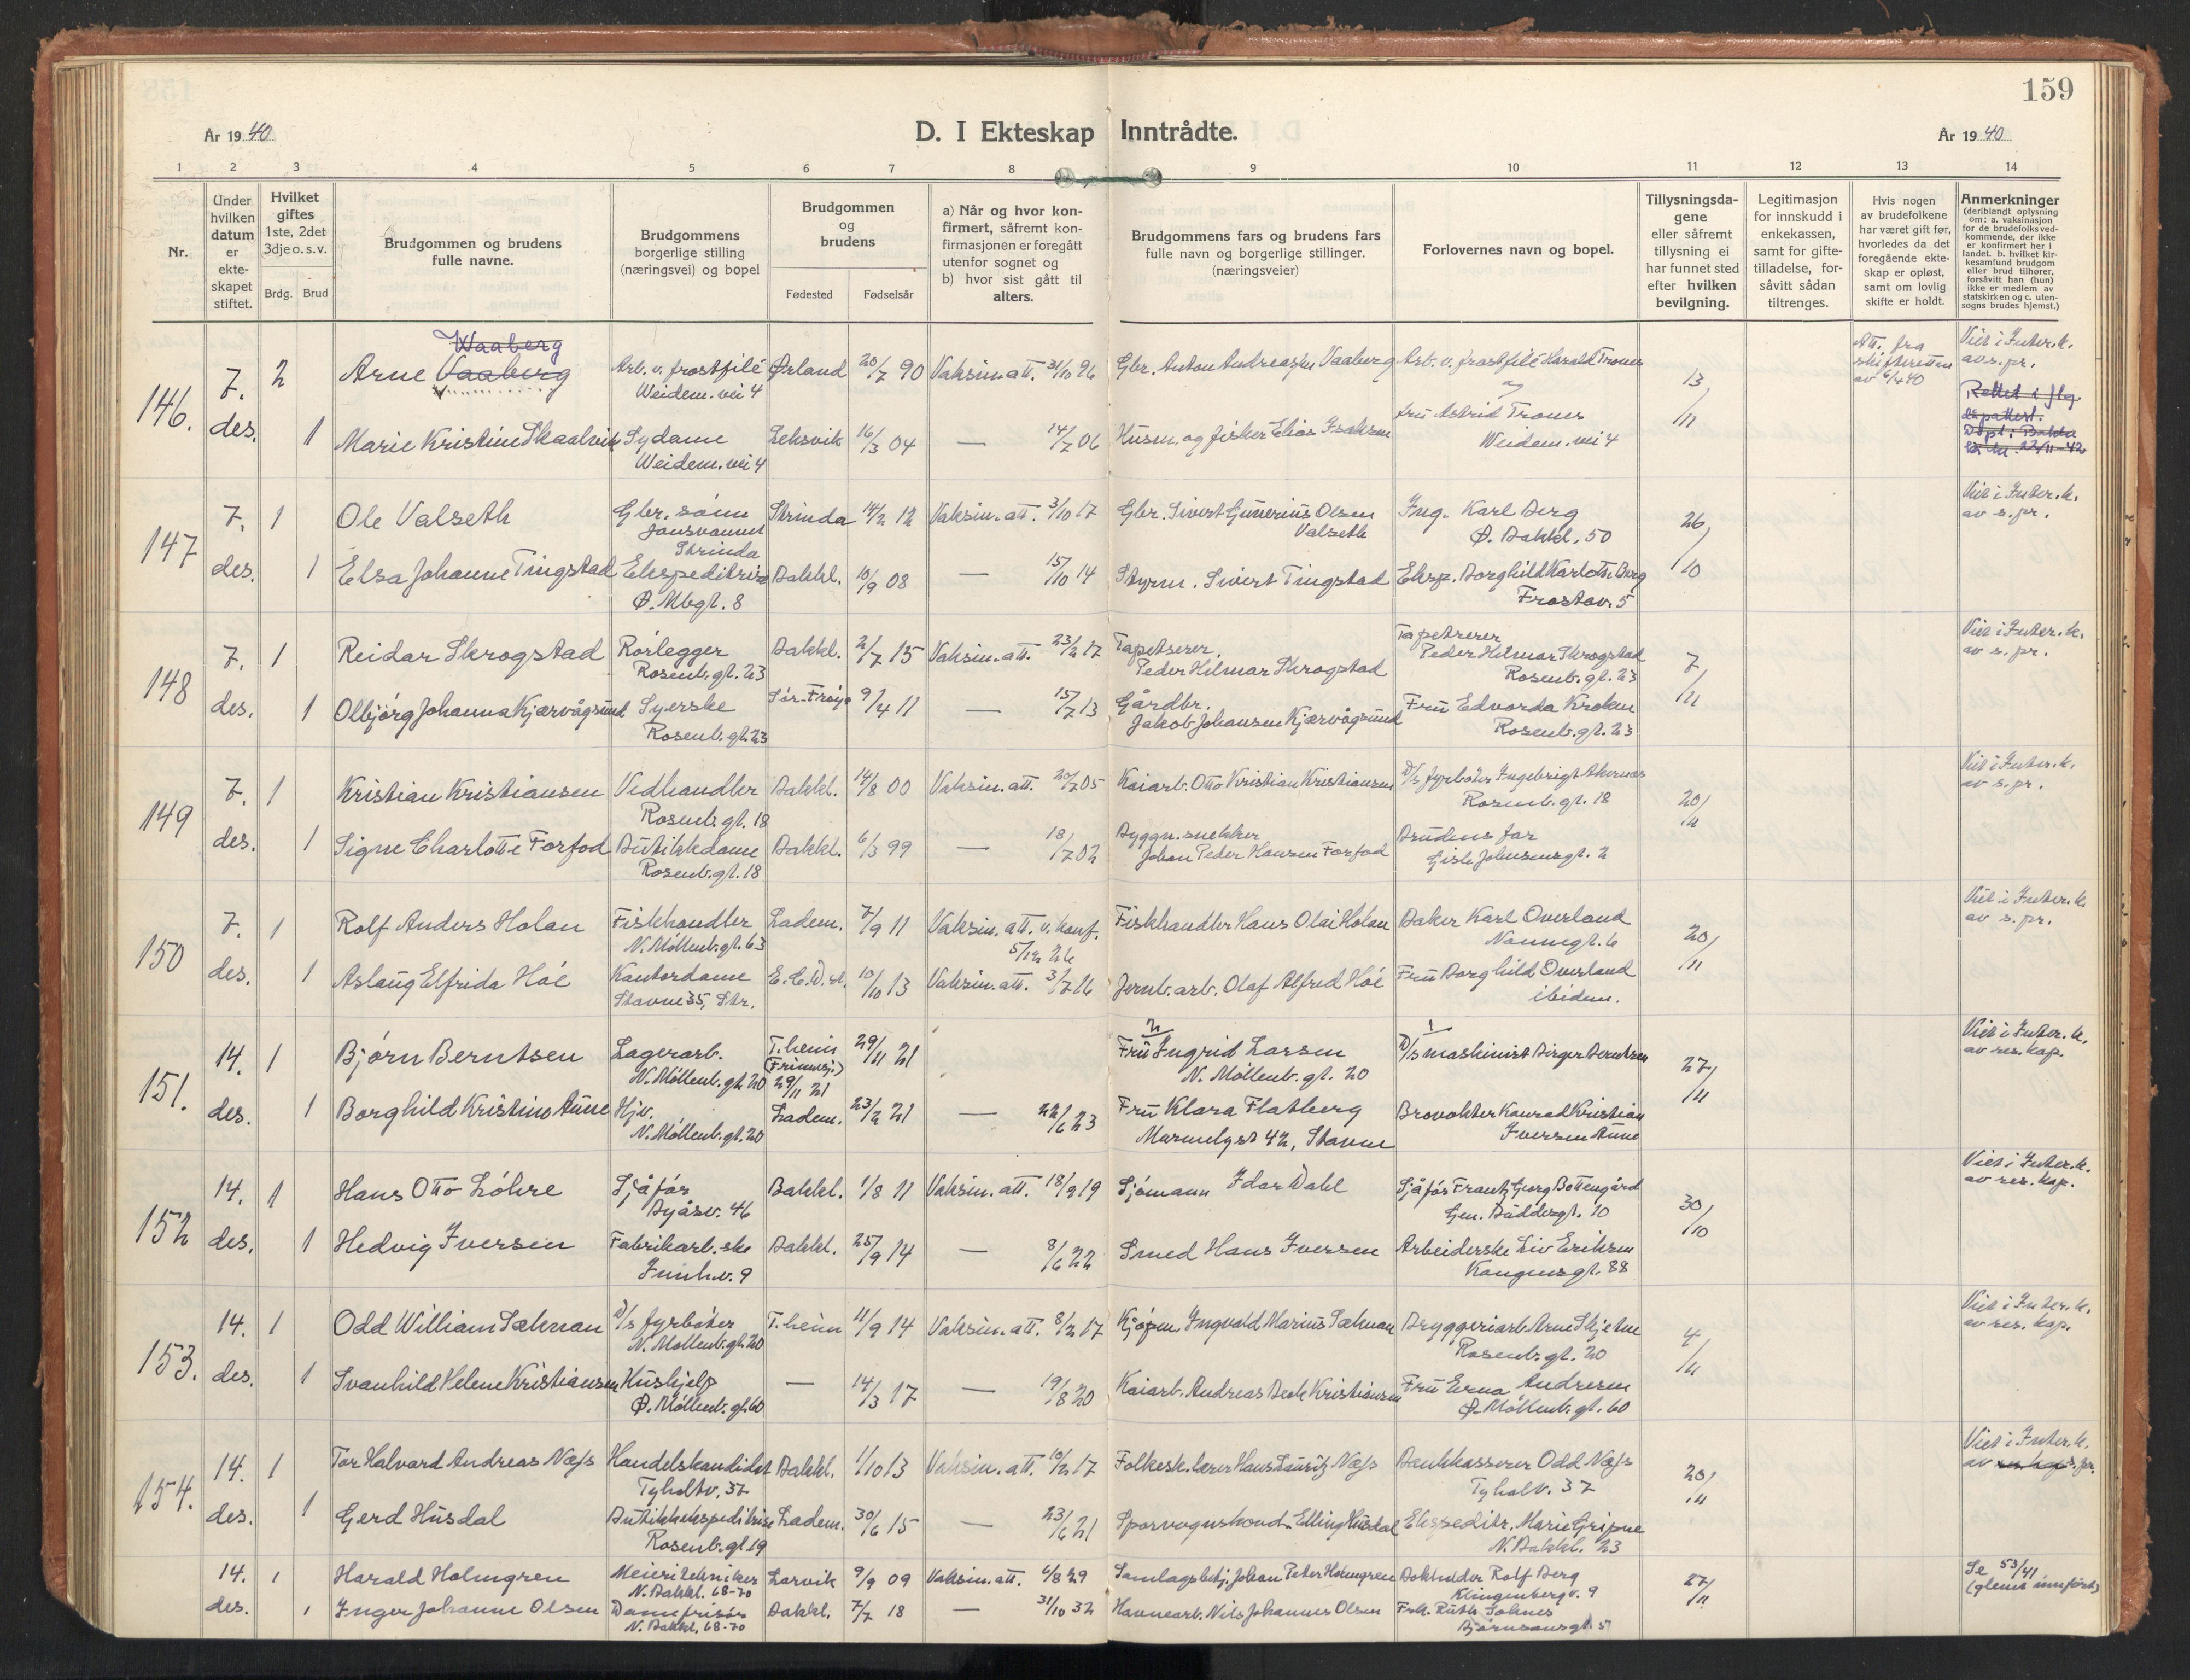 159
År 1940
D. I Ekteskap Inntrådte.
År 1940
1 2 3 4 5 6 7 8 9 10 11 12 13 14
Nr.
Under hvilken datum er ekte-skapet stiftet.
Hvilket giftes 1ste, 2det 3dje o. s. v.
Brdg. Brud
Brudgommen og brudens fulle navne.
Brudgommens borgerlige stilling (næringsvei) og bopel
Brudgommen og brudens
Fødested Fødselsår
a) Når og hvor kon-firmert, såfremt kon-firmasjonen er foregått utenfor sognet og b) hvor sist gått til alters.
Brudgommens fars og brudens fars fulle navn og borgerlige stillinger. (næringsveier)
Forlovernes navn og bopel.
Tillysningsda-gene eller såfremt tillysning ei har funnet sted efter hvilken bevilgning.
Legitimasjon for innskudd i enkekassen, samt for gifte-tilladelse, for-såvitt sådan tiltrenges.
Hvis nogen av brudefolkene har været gift før, hvorledes da det foregående ekte-skap er opløst, samt om lovlig skifte er holdt.
Anmerkninger (deriblandt oplysning om: a. vaksinasjon for de brudefolks ved-kommende, der ikke er konfirmert her i landet. b. hvilket kir-kesamfund brudgom eller brud tilhører, forsåvitt han (hun) ikke er medlem av statskirken og c. uten-sogns brudes hjemst.)
146. 7. des.
2 Arne Vaaberg Waaberg
Arb. v. frostfilé Weidem. vei 4
Ørland 20/7 90 Vaksin. att. 31/10 96
Gbr. Anton Andreassen Vaaberg
Arb. v. frostfilé Harald Trones og
13/11
Att. fra skifteretten av 6/4 40
Viet i Inter.k. av s. pr.
1 Marie Kristine Skaalvik
Sydame Weidem. vei 4
Leksvik 16/3 04 — 14/7 06
Husm. og fisker Elias Isaksen
fru Astrid Trones Weidem. vei 4
147 7. des.
1 Ole Valseth
Gbr. sønn Jonsvannet Strinda
Strinda 14/2 12 Vaksin. att. 3/10 17
Gbr. Sivert Gunerius Olsen Valseth
Ing. Karl Berg Ø. Bakkl. 50
26/10
Viet i Inter.k. av s. pr.
1 Elsa Johanne Tingstad
Ekspeditrise Ø. Mbgt. 8
Bakkl. 10/9 08 — 15/10 14
Styrm. Sivert Tingstad
Eksp. Borghild Karlotte Berg Frostav. 5
148 7. des.
1 Reidar Skrogstad
Rørlegger Rosenb. gt. 23
Bakkl. 2/7 15 Vaksin. att. 23/2 17
Tapetserer Peder Hilmar Skrogstad
Tapetserer Peder Hilmar Skrogstad Rosenb. gt. 23
7/11
Viet i Inter.k. av s. pr.
1 Olbjørg Johanna Kjærvågsund
Syerske Rosenb. gt. 23
Sør-Frøya 9/4 11 — 15/7 13
Gårdbr. Jakob Johansen Kjærvågsund
Fru Edvarda Kroken Rosenb. gt. 23
149 7. des.
1 Kristian Kristiansen
Vedhandler Rosenb. gt. 18
Bakkl. 14/8 00 Vaksin. att. 20/7 05
Kaiarb. Otto Kristian Kristiansen
D/s fyrbøter Ingebrigt Akernes Rosenb. gt. 18
20/11
Viet i Inter.k. av s. pr.
1 Signe Charlotte Forfod
Butikkdame Rosenb. gt. 18
Bakkl. 6/3 99 — 18/7 02
Byggn. snekker Johan Peder Hansen Forfod
Brudens far Gisle Johnsensgt. 2
150 7. des.
1 Rolf Anders Holan
Fiskhandler N. Møllenb. gt. 63
Ladem. 7/9 11 Vaksin. att. v. konf. 5/12 26
Fiskhandler Hans Olai Holan
Baker Karl Overland Nonnegt. 6
20/11
Viet i Inter.k. av s. pr.
1 Aslaug Elfrida Høe
Kontordame Stavne 35, Str.
10/10 13 Vaksin. att. 3/7 16
Jernb. arb. Olaf Alfred Høe
Fru Borghild Overland ibidem.
151. 14. des.
1 Bjørn Berntsen
Lagerarb. N. Møllenb. gt. 20
T.heim (Frimenj.) 29/11 21
29/11 21
2 Fru Ingrid Larsen N. Møllenb. gt. 20
1 D/s maskinist Birger Berntsen
27/11
Viet i Inter.k. av res. kap.
1 Borghild Kristine Aune
Hjv. N. Møllenb. gt. 20
Ladem. 23/2 21 — 22/6 23
Fru Klara Flatberg Marmelyst 42, Stavne
Brovokter Konrad Kristian Iversen Aune
152 14. des.
1 Hans Otto Løhre
Sjåfør Byåsv. 46
Bakkl. 1/8 11 Vaksin. att. 18/9 19
Sjømann Idar Dahl
Sjåfør Frantz Georg Bottengård Gen. Buddesgt. 10
30/10
Viet i Inter.k. av res. kap.
1 Hedvig Iversen
Fabrikarb.ske Innh.v. 9
Bakkl. 25/9 14 — 8/6 22
Smed Hans Iversen
Arbeiderske Liv Eriksen Kongens gt. 88
153. 14. des.
1 Odd William Sæhnan
D/s fyrbøter N. Møllenb. gt. 20
T.heim 11/9 14 Vaksin. att. 8/2 17
Kjøpm. Ingvald Marius Sæhnan
Bryggeriarb. Arne Skjetne Rosenb. gt. 20
4/11
Viet i Inter.k. av res. kap.
1 Svanhild Helene Kristiansen
Hushjelp Ø. Møllenb. gt. 60
— 14/3 17 — 19/8 20
Kaiarb. Andreas Beck Kristiansen
Fru Erna Andresen Ø. Møllenb. gt. 60
154. 14. des.
1 Tor Halvard Andreas Næss
Handelskandidat Tyholtv. 37
Bakkl. 1/10 13 Vaksin. att. 10/2 17
Folkesk. lærer Hans Lauritz Næss
Bankkasserer Odd Næss Tyholtv. 37
20/11
Viet i Inter.k. av res. kap. s. pr.
1 Gerd Husdal
Butikkekspeditrise Rosenb. gt. 19
Ladem. 30/6 15 — 23/6 21
Sporvognskond. Elling Husdal
Ekspeditr. Marie Gripne N. Bakkl. 23
14. des.
1 Harald Holmgren
Meieritekniker N. Bakkl. 68-70
Larvik 9/9 09 Vaksin. att. 6/8 29
Samlagsbetj. Johan Peter Holmgren
Bokholder Rolf Berg Klingenbergv. 9
27/11
Se 53/41 (glemt innført)
1 Inger Johanne Olsen
Damefrisør N. Bakkl. 68-70
Bakkl. 7/7 18 — 31/10 32
Havnearb. Nils Johannes Olsen
Frk. Ruth Solnes Bjørnsonsgt. 5